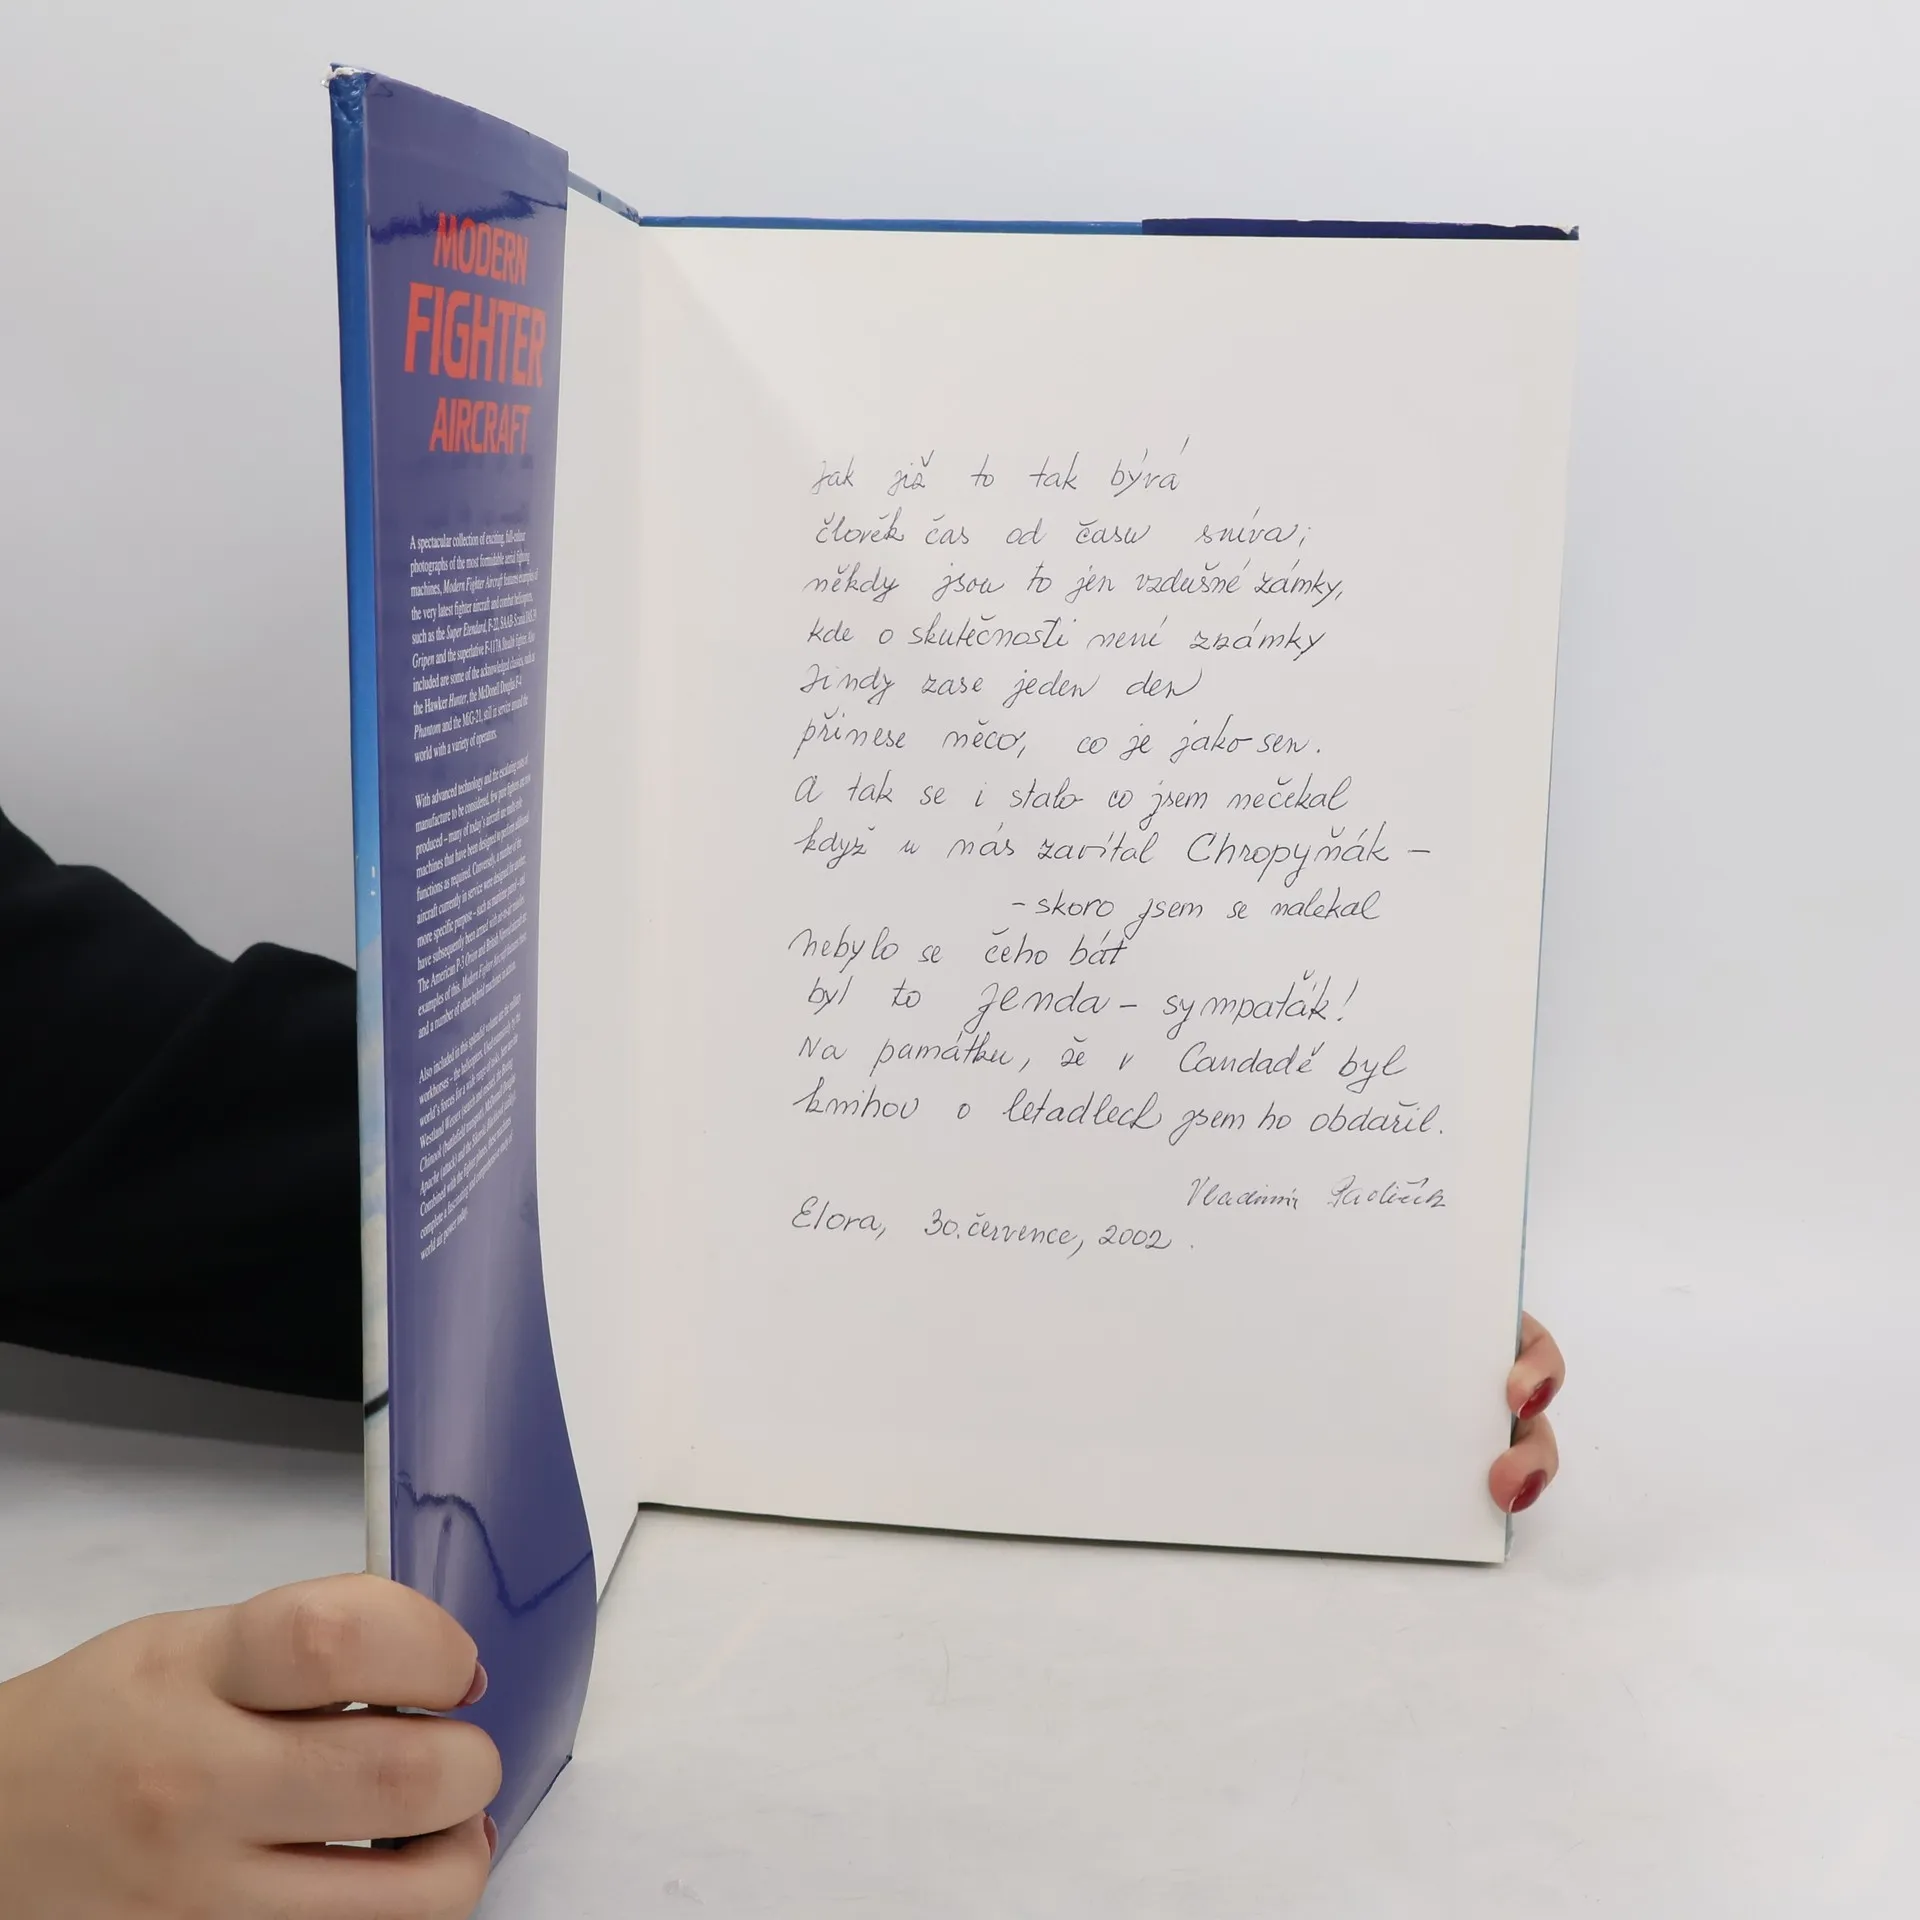 MODERN
FIGHTER
AIRCRAFT
A spectacular collection of exciting, full-colour
photographs of the most formidable aerial fighting
machines, Modern Fighter Aircraft features examples of
the very latest fighter aircraft and combat helicopters,
such as the Super Etendard, F-22, SAAB-Scania JAS 39
Gripen and the superlative F-117A Stealth fighter. Also
included are some of the acknowledged classics, such as
the Hawker Hunter, the McDonell Douglas F-4
Phantom and the MiG-21, still in service around the
world with a variety of operators.
With advanced technology and the escalating costs of
manufacture to be considered, few pure fighters are now
produced – many of today's aircraft are multi-role
machines that have been designed to perform additional
functions as required. Conversely, a number of the
aircraft currently in service were designed for another,
more specific purpose – such as maritime patrol – and
have subsequently been armed with air-to-air missiles.
The American P-3 Orion and British Nimrod aircraft are
examples of this. Modern Fighter Aircraft features these
and a number of other hybrid machines in action.
Also included in this splendid volume are the military
workhorses – the helicopters. Used extensively by the
world's forces for a wide range of tasks, here are the
Westland Wessex (search and rescue), the Boeing
Chinook (battlefield transport), McDonnell Douglas
Apache (attack) and the Sikorsky
Combined with the fighter planes, these machines
complete a fascinating and comprehensive study of
world air power today.
Jak již to tak bývá
člověk čas od času sníva;
někdy jsou to jen vzdušné zámky,
kde o skutečnosti není známky
Jindy zase jeden den
přinese něco, co je jako sen.
A tak se i stalo co jsem nečekal
když u nás zavítal Chropyňák –
- skoro jsem se nalekal
nebylo se čeho bát
byl to Jenda – sympaťák!
Na památku, že v Candadě byl
knihou o letadlech jsem ho obdařil.
Vladimír
Elora, 30. července, 2002.